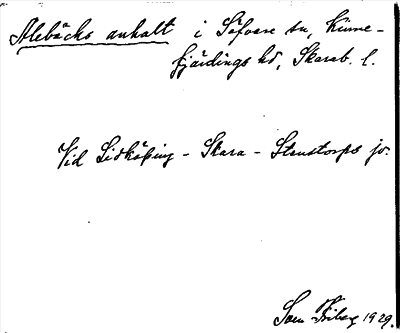 Alebäcks anhalt i Säfvare sn, Kinne-
fjärdings hd, Skarab. l.
Vid Lidköping - Skara - Stenstorps jv.
Sven Friberg 1929.